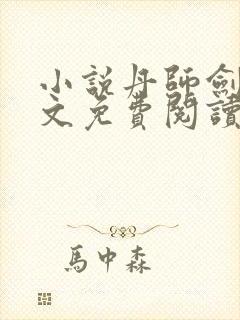 小説丹師劍
文免費閱讀
馬中森